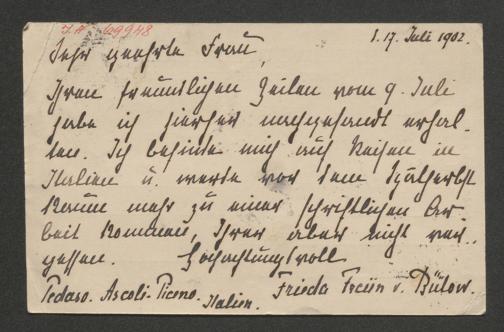 I.N. 69948
1. 17. Juli 1902.
Sehr geehrte Frau,
Ihren freundlichen Zeilen vom 9. Juli
habe ich hierher nachgesandt erhal-
ten. Ich befinde mich auf Reisen in
Italien u. werde vor dem Spätherbst
kaum mehr zu einer schriftlichen Ar-
beit kommen, Ihrer aber nicht ver-
gessen. Hochachtungsvoll
Pedaso. Ascoli-Piceno. Italien. Frieda Freiin v. Bülow.